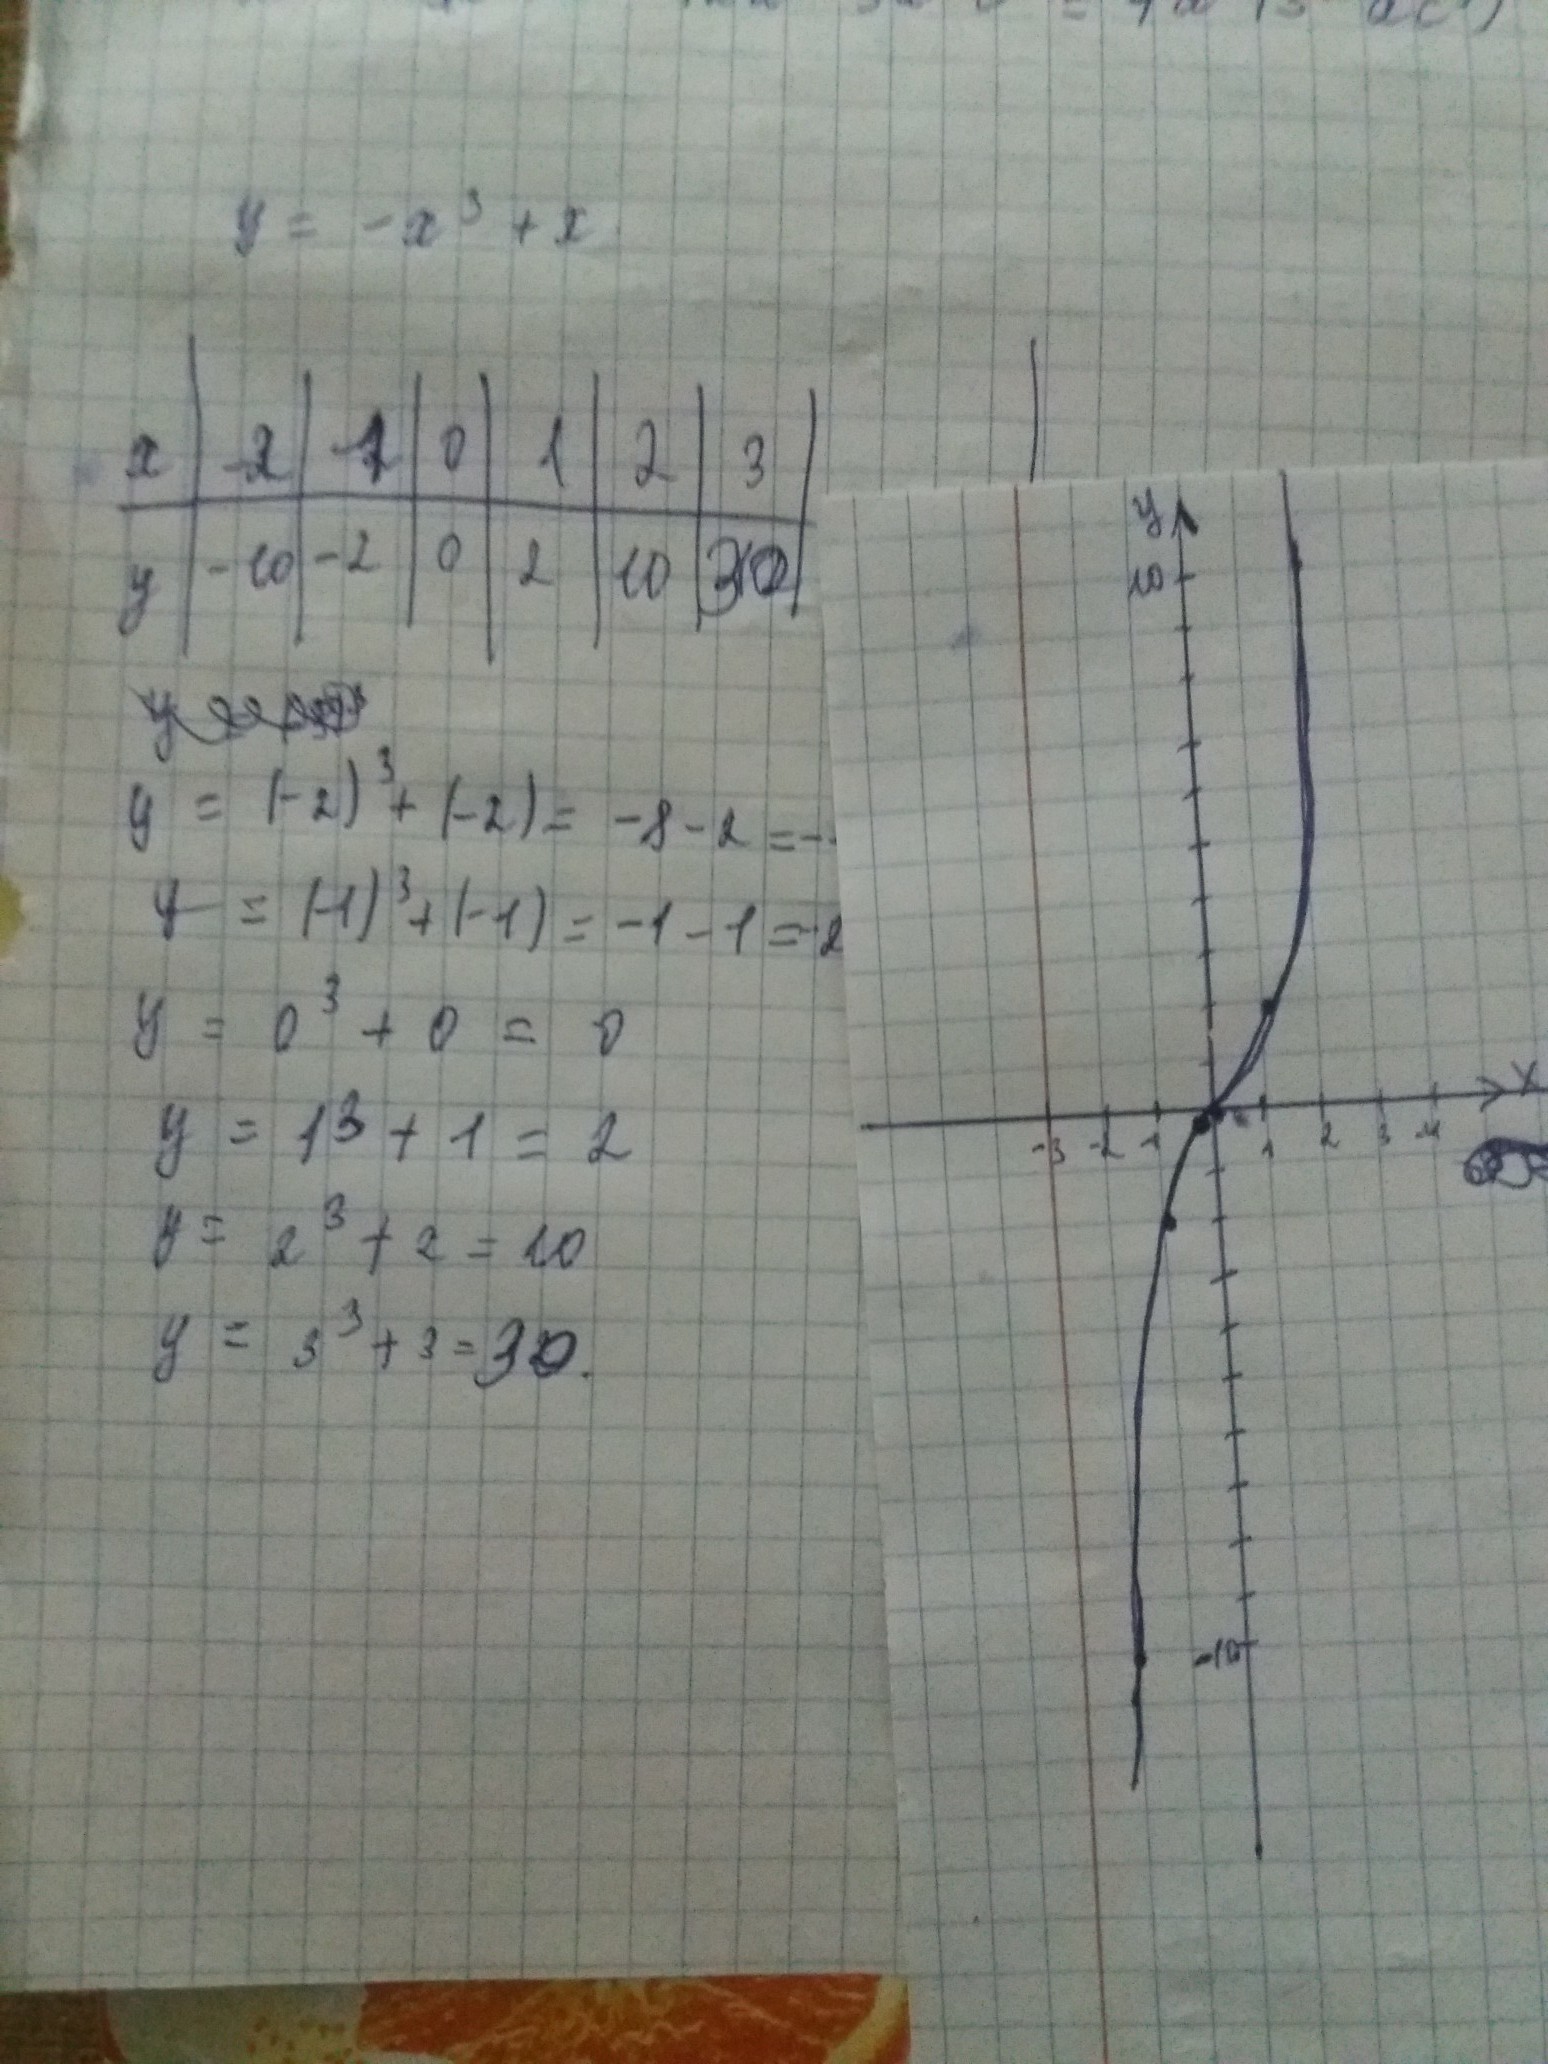 y = -x³ + x
x | -2 | -1 | 0 | 1 | 2 | 3
y | -10 | -2 | 0 | 2 | 10 | 30
y = (-2)³ + (-2) = -8 - 2 = -
y = (-1)³ + (-1) = -1 - 1 = -2
y = 0³ + 0 = 0
y = 1³ + 1 = 2
y = 2³ + 2 = 10
y = 3³ + 3 = 30.
y
10
x
-3 -2 -1 1 2 3 4
-10